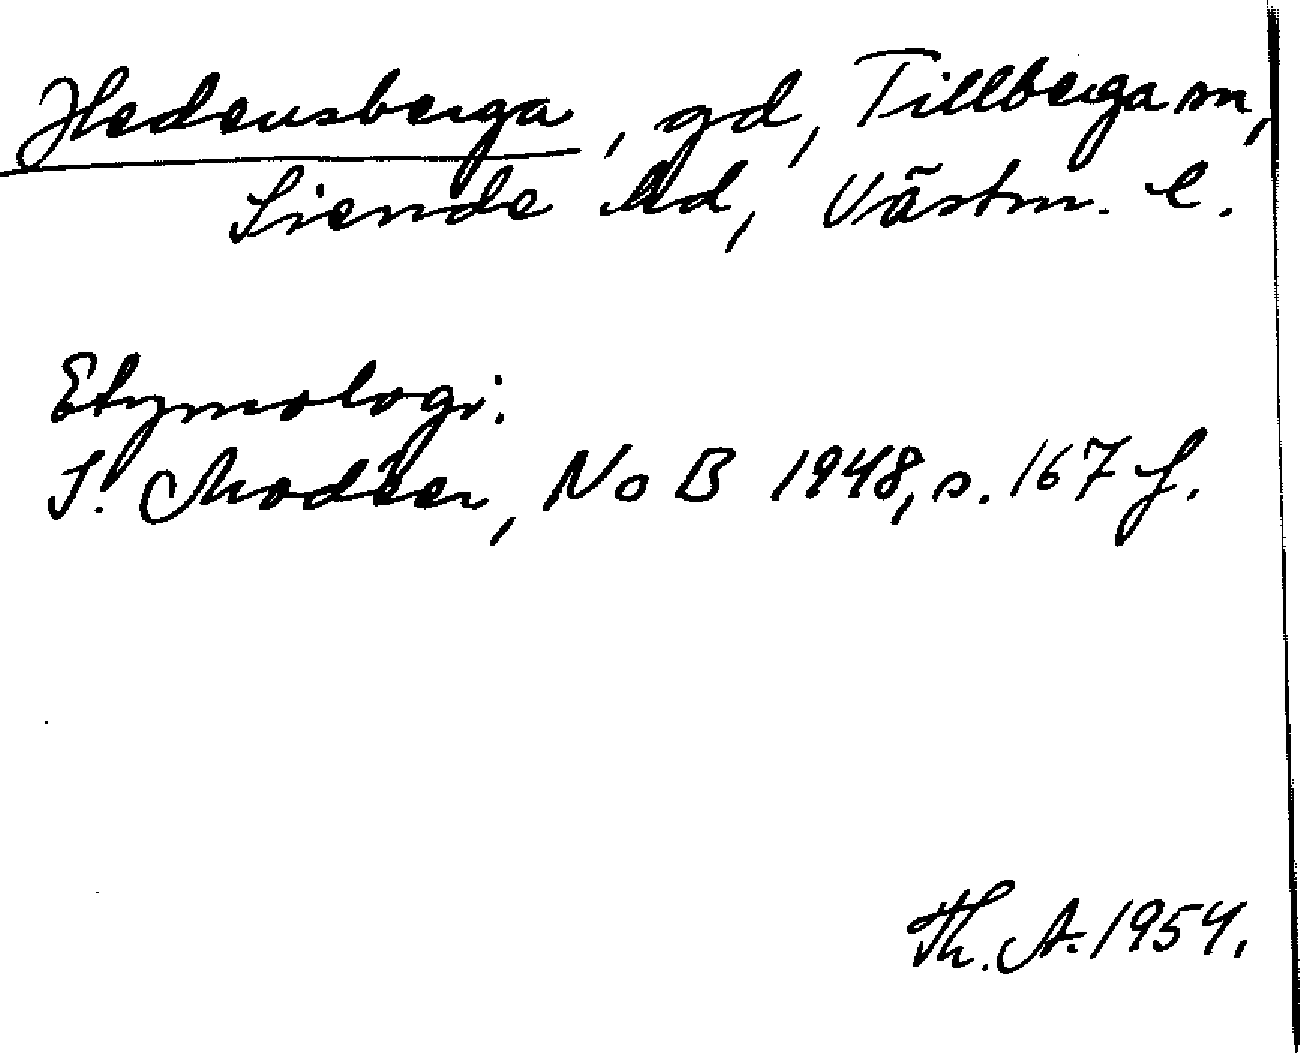 Hedensberga, gd, Tillberga sn,
Siende hd, Västm. l.
Etymologi:
I. Modéer, NoB 1948, s. 167 f.
Th. A. 1954.